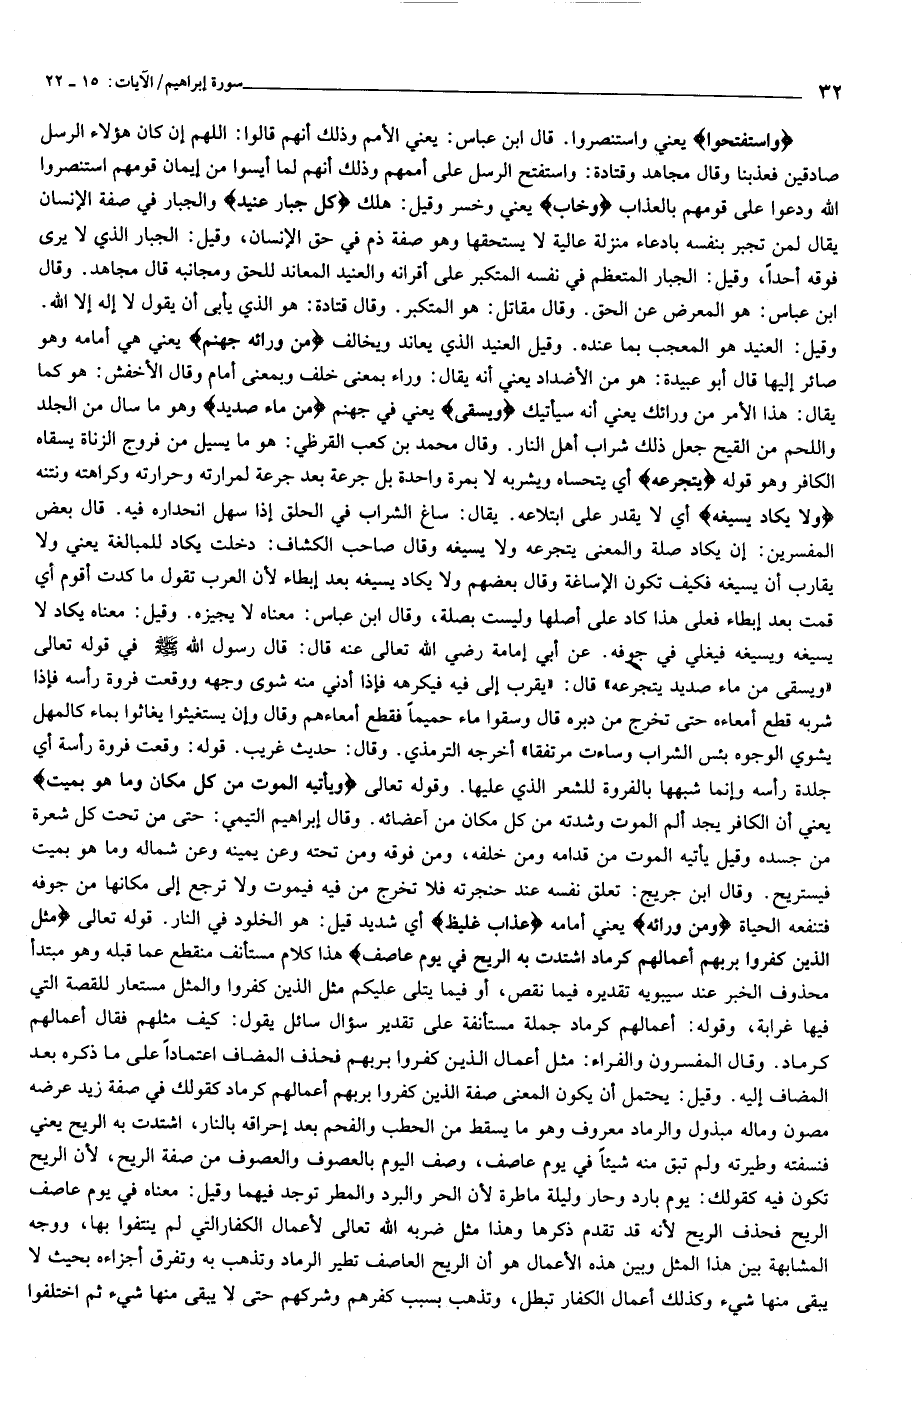 ٣٢ سورة إبراهيم/ الآيات: ١٥ ـ ٢٢
﴿واستفتحوا﴾ يعني واستنصروا. قال ابن عباس: يعني الأمم وذلك أنهم قالوا: اللهم إن كان هؤلاء الرسل
صادقين فعذبنا وقال مجاهد وقتادة: واستفتح الرسل على أممهم وذلك أنهم لما أيسوا من إيمان قومهم استنصروا
الله ودعوا على قومهم بالعذاب ﴿وخاب﴾ يعني وخسر وقيل: هلك ﴿كل جبار عنيد﴾ والجبار في صفة الإنسان
يقال لمن تجبر بنفسه بادعاء منزلة عالية لا يستحقها وهو صفة ذم في حق الإنسان، وقيل: الجبار الذي لا يرى
فوقه أحداً، وقيل: الجبار المتعظم في نفسه المتكبر على أقرانه والعنيد المعاند للحق ومجانبه قال مجاهد. وقال
ابن عباس: هو المعرض عن الحق. وقال مقاتل: هو المتكبر. وقال قتادة: هو الذي يأبى أن يقول لا إله إلا الله.
وقيل: العنيد هو المعجب بما عنده. وقيل العنيد الذي يعاند ويخالف ﴿من ورائه جهنم﴾ يعني هي أمامه وهو
صائر إليها قال أبو عبيدة: هو من الأضداد يعني أنه يقال: وراء بمعنى خلف وبمعنى أمام وقال الأخفش: هو كما
يقال: هذا الأمر من ورائك يعني أنه سيأتيك ﴿ويسقى﴾ يعني في جهنم ﴿من ماء صديد﴾ وهو ما سال من الجلد
واللحم من القيح جعل ذلك شراب أهل النار. وقال محمد بن كعب القرظي: هو ما يسيل من فروج الزناة يسقاه
الكافر وهو قوله ﴿يتجرعه﴾ أي يتحساه ويشربه لا بمرة واحدة بل جرعة بعد جرعة لمرارته وحرارته وكراهته ونتنه
﴿ولا يكاد يسيغه﴾ أي لا يقدر على ابتلاعه. يقال: ساغ الشراب في الحلق إذا سهل انحداره فيه. قال بعض
المفسرين: إن يكاد صلة والمعنى يتجرعه ولا يسيغه وقال صاحب الكشاف: دخلت يكاد للمبالغة يعني ولا
يقارب أن يسيغه فكيف تكون الإساغة وقال بعضهم ولا يكاد يسيغه بعد إبطاء لأن العرب تقول ما كدت أقوم أي
قمت بعد إبطاء فعلى هذا كاد على أصلها وليست بصلة، وقال ابن عباس: معناه لا يجيزه. وقيل: معناه يكاد لا
يسيغه ويسيغه فيغلي في جوفه. عن أبي إمامة رضي الله تعالى عنه قال: قال رسول الله ﷺ في قوله تعالى
«ويسقى من ماء صديد يتجرعه» قال: «يقرب إلى فيه فيكرهه فإذا أدني منه شوى وجهه ووقعت فروة رأسه فإذا
شربه قطع أمعاءه حتى تخرج من دبره قال وسقوا ماء حميماً فقطع أمعاءهم وقال وإن يستغيثوا يغاثوا بماء كالمهل
يشوي الوجوه بئس الشراب وساءت مرتفقا» أخرجه الترمذي. وقال: حديث غريب. قوله: وقعت فروة رأسة أي
جلدة رأسه وإنما شبهها بالفروة للشعر الذي عليها. وقوله تعالى ﴿ويأتيه الموت من كل مكان وما هو بميت﴾
يعني أن الكافر يجد ألم الموت وشدته من كل مكان من أعضائه. وقال إبراهيم التيمي: حتى من تحت كل شعرة
من جسده وقيل يأتيه الموت من قدامه ومن خلفه، ومن فوقه ومن تحته وعن يمينه وعن شماله وما هو بميت
فيستريح. وقال ابن جريج: تعلق نفسه عند حنجرته فلا تخرج من فيه فيموت ولا ترجع إلى مكانها من جوفه
فتنفعه الحياة ﴿ومن ورائه﴾ يعني أمامه ﴿عذاب غليظ﴾ أي شديد قيل: هو الخلود في النار. قوله تعالى ﴿مثل
الذين كفروا بربهم أعمالهم كرماد اشتدت به الريح في يوم عاصف﴾ هذا كلام مستأنف منقطع عما قبله وهو مبتدأ
محذوف الخبر عند سيبويه تقديره فيما نقص، أو فيما يتلى عليكم مثل الذين كفروا والمثل مستعار للقصة التي
فيها غرابة، وقوله: أعمالهم كرماد جملة مستأنفة على تقدير سؤال سائل يقول: كيف مثلهم فقال أعمالهم
كرماد. وقال المفسرون والفراء: مثل أعمال الذين كفروا بربهم فحذف المضاف اعتماداً على ما ذكره بعد
المضاف إليه. وقيل: يحتمل أن يكون المعنى صفة الذين كفروا بربهم أعمالهم كرماد كقولك في صفة زيد عرضه
مصون وماله مبذول والرماد معروف وهو ما يسقط من الحطب والفحم بعد إحراقه بالنار، اشتدت به الريح يعني
فنسفته وطيرته ولم تبق منه شيئاً في يوم عاصف، وصف اليوم بالعصوف والعصوف من صفة الريح، لأن الريح
تكون فيه كقولك: يوم بارد وحار وليلة ماطرة لأن الحر والبرد والمطر توجد فيهما وقيل: معناه في يوم عاصف
الريح فحذف الريح لأنه قد تقدم ذكرها وهذا مثل ضربه الله تعالى لأعمال الكفارالتي لم ينتفوا بها، ووجه
المشابهة بين هذا المثل وبين هذه الأعمال هو أن الريح العاصف تطير الرماد وتذهب به وتفرق أجزاءه بحيث لا
يبقى منها شيء وكذلك أعمال الكفار تبطل، وتذهب بسبب كفرهم وشركهم حتى لا يبقى منها شيء ثم اختلفوا